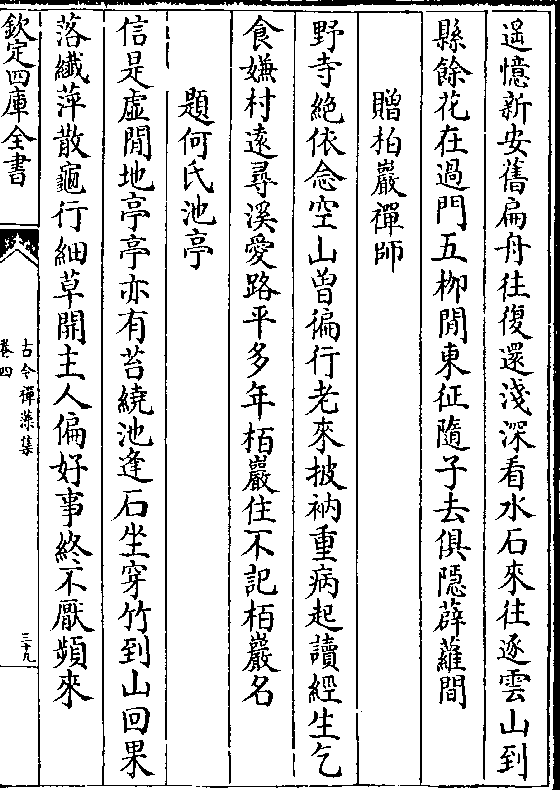 遥憶新安舊扁舟往復還淺深看水石來往逐雲山到
縣餘花在過門五栁閒東征隨子去俱隱薜蘿間
贈柏巖禪師
野寺絶依念空山曾徧行老來披衲重病起讀經生乞
食嫌村遠尋溪愛路平多年栢巖住不記栢巖名
題何氏池亭
信是虚閒地亭亭亦有苔繞池逢石坐穿竹到山回果
落纎萍散龜行細草開主人偏好事終不厭頻來
欽定四庫全書
古今禪藻集
卷四
三十九